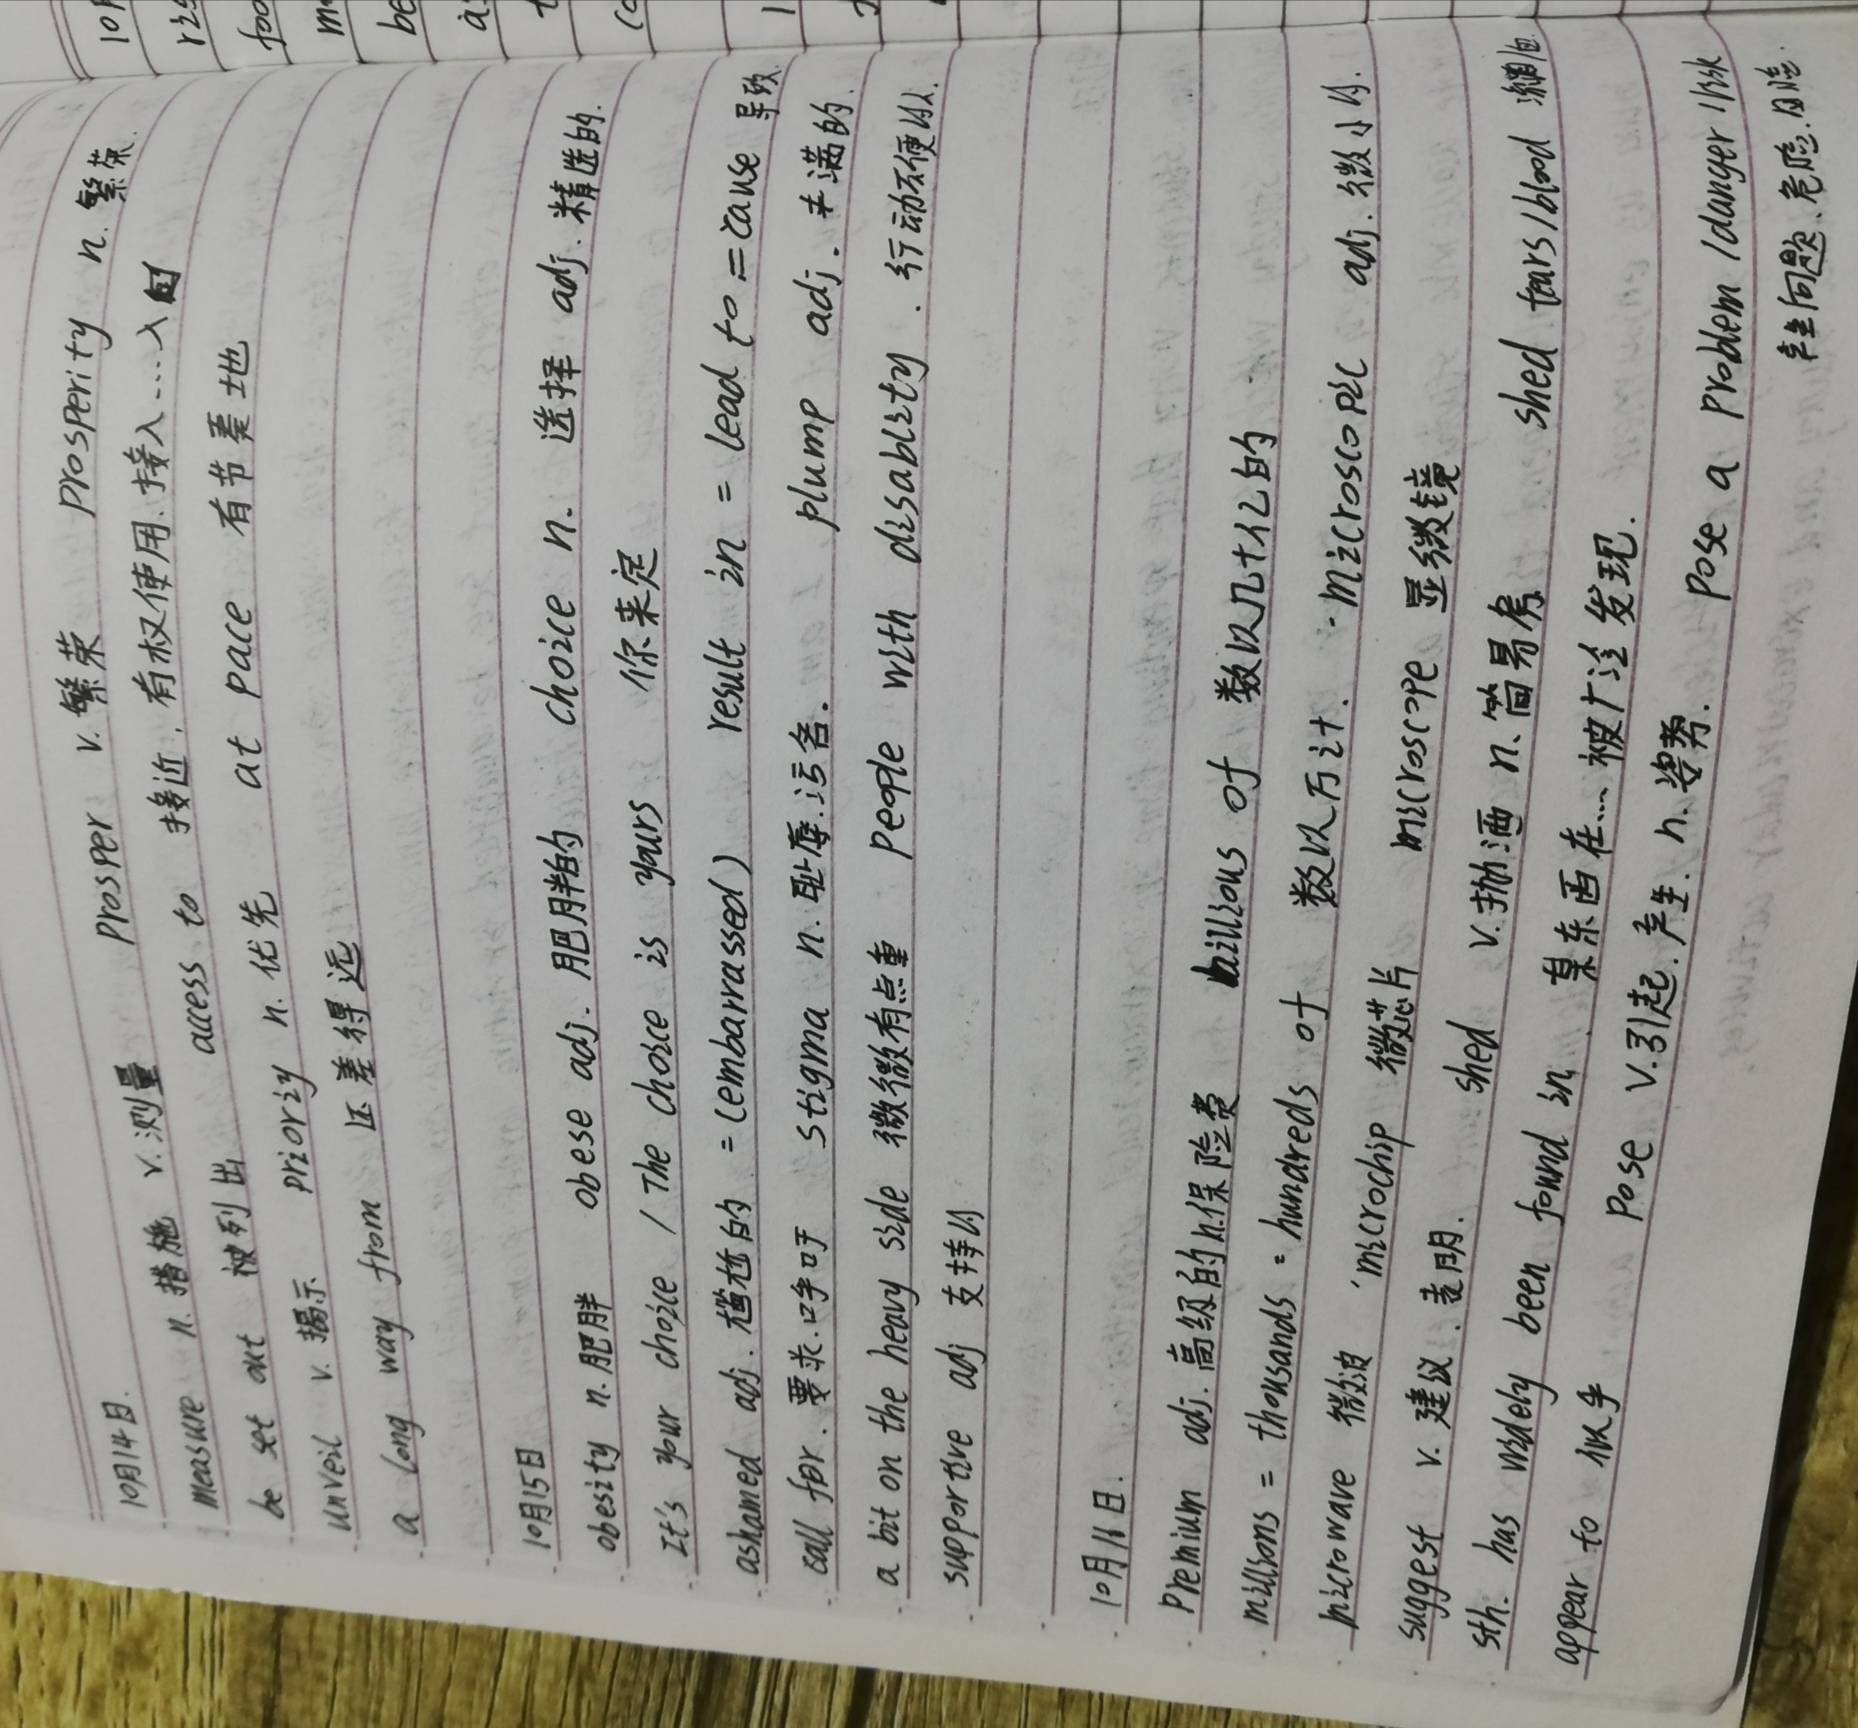 10月14日.
measure n.措施 v.测量 prosper v.繁荣 prosperity n.繁荣.
be set out 被列出 access to 接近.有权使用.接入....入口
unveil v.揭示 priority n.优先 at pace 有节奏地
a long way from 还差得远
10月15日
obesity n.肥胖 obese adj.肥胖的 choice n.选择 adj.精选的.
It's your choice / The choice is yours 你来定
ashamed adj.尴尬的 =(embarrassed) result in = lead to = cause 导致
call for.要求.呼吁 stigma n.耻辱.污名. plump adj.丰满的.
a bit on the heavy side 微微有点重 people with disability.行动不便的人.
supportive adj 支持的
10月16日.
Premium adj.高级的n.保险费 billions of 数以几十亿的
millions = thousands = hundreds of 数以万计. microscopic adj.微小的.
microwave 微波 microchip 微芯片 microscope 显微镜
suggest v.建议.表明. shed v.抛洒 n.简易房 shed tears/blood
sth. has widely been found in. 某东西在....被广泛发现.
appear to 似乎 pose v.引起.产生.n.姿势. pose a problem/danger/risk
产生问题.危险.冒险